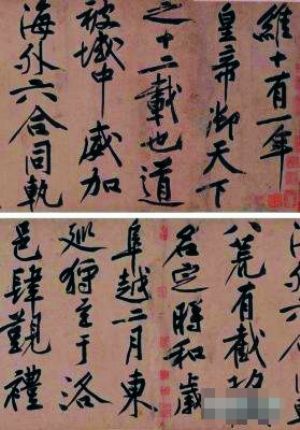 維十有一年
皇帝御天下
之十二載也道
被域中威加
海外六合同軌
外六合
八荒有截功
名定時和歲
阜越二月東
巡狩至于洛
邑肆覲禮